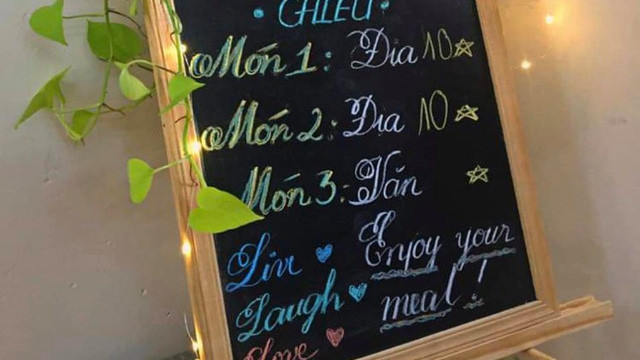 • CHIỀU •
Món 1: Địa 10 ☆
Món 2: Địa 10 ☆
Món 3: Văn ☆
Live ♥ Enjoy your
Laugh ♥ meal!
Love ♥